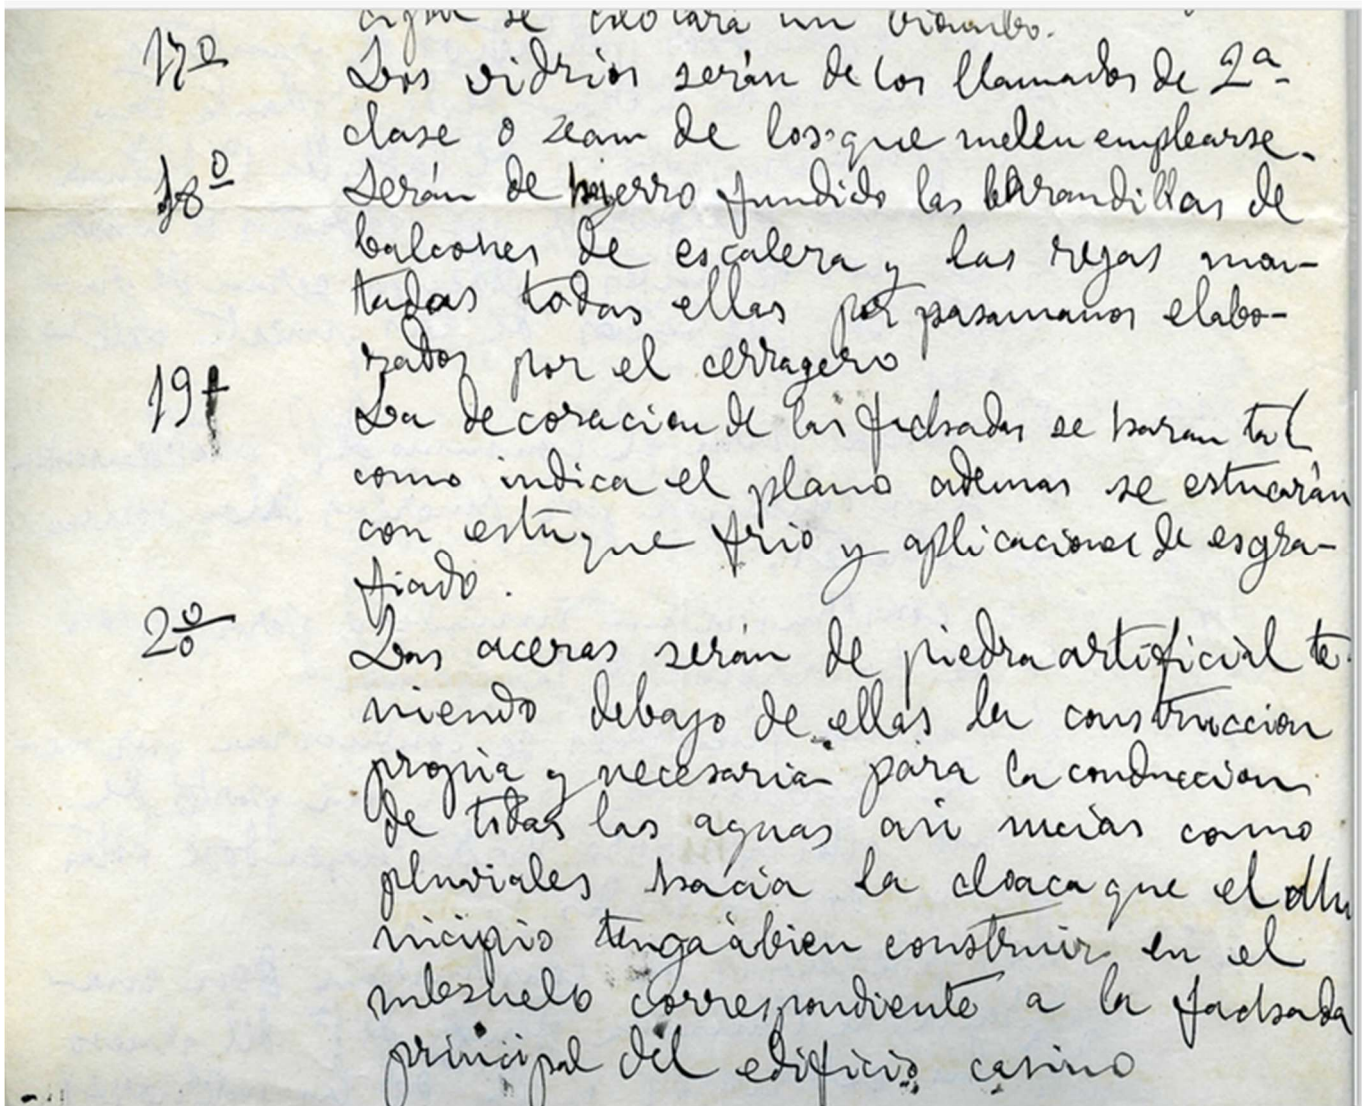 se colocará un biombo.
17º Los vidrios serán de los llamados de 2ª
clase o sean de los que suelen emplearse.
18º Serán de hyerro fundido las barandillas de
balcones de escalera y las rejas mon-
tadas todas ellas por pasamanos elabo-
rados por el cerragero
19 La decoracion de las fachadas se haran tal
como indica el plano ademas se estucarán
con estuque frio y aplicaciones de esgra-
fiado.
20 Las aceras serán de piedra artificial te-
niendo debajo de ellas la construccion
propia y necesaria para la conduccion
de todas las aguas asi sucias como
pluviales hacia la cloaca que el Mu
nicipio tenga à bien construir en el
subsuelo correspondiente a la fachada
principal del edificio casino